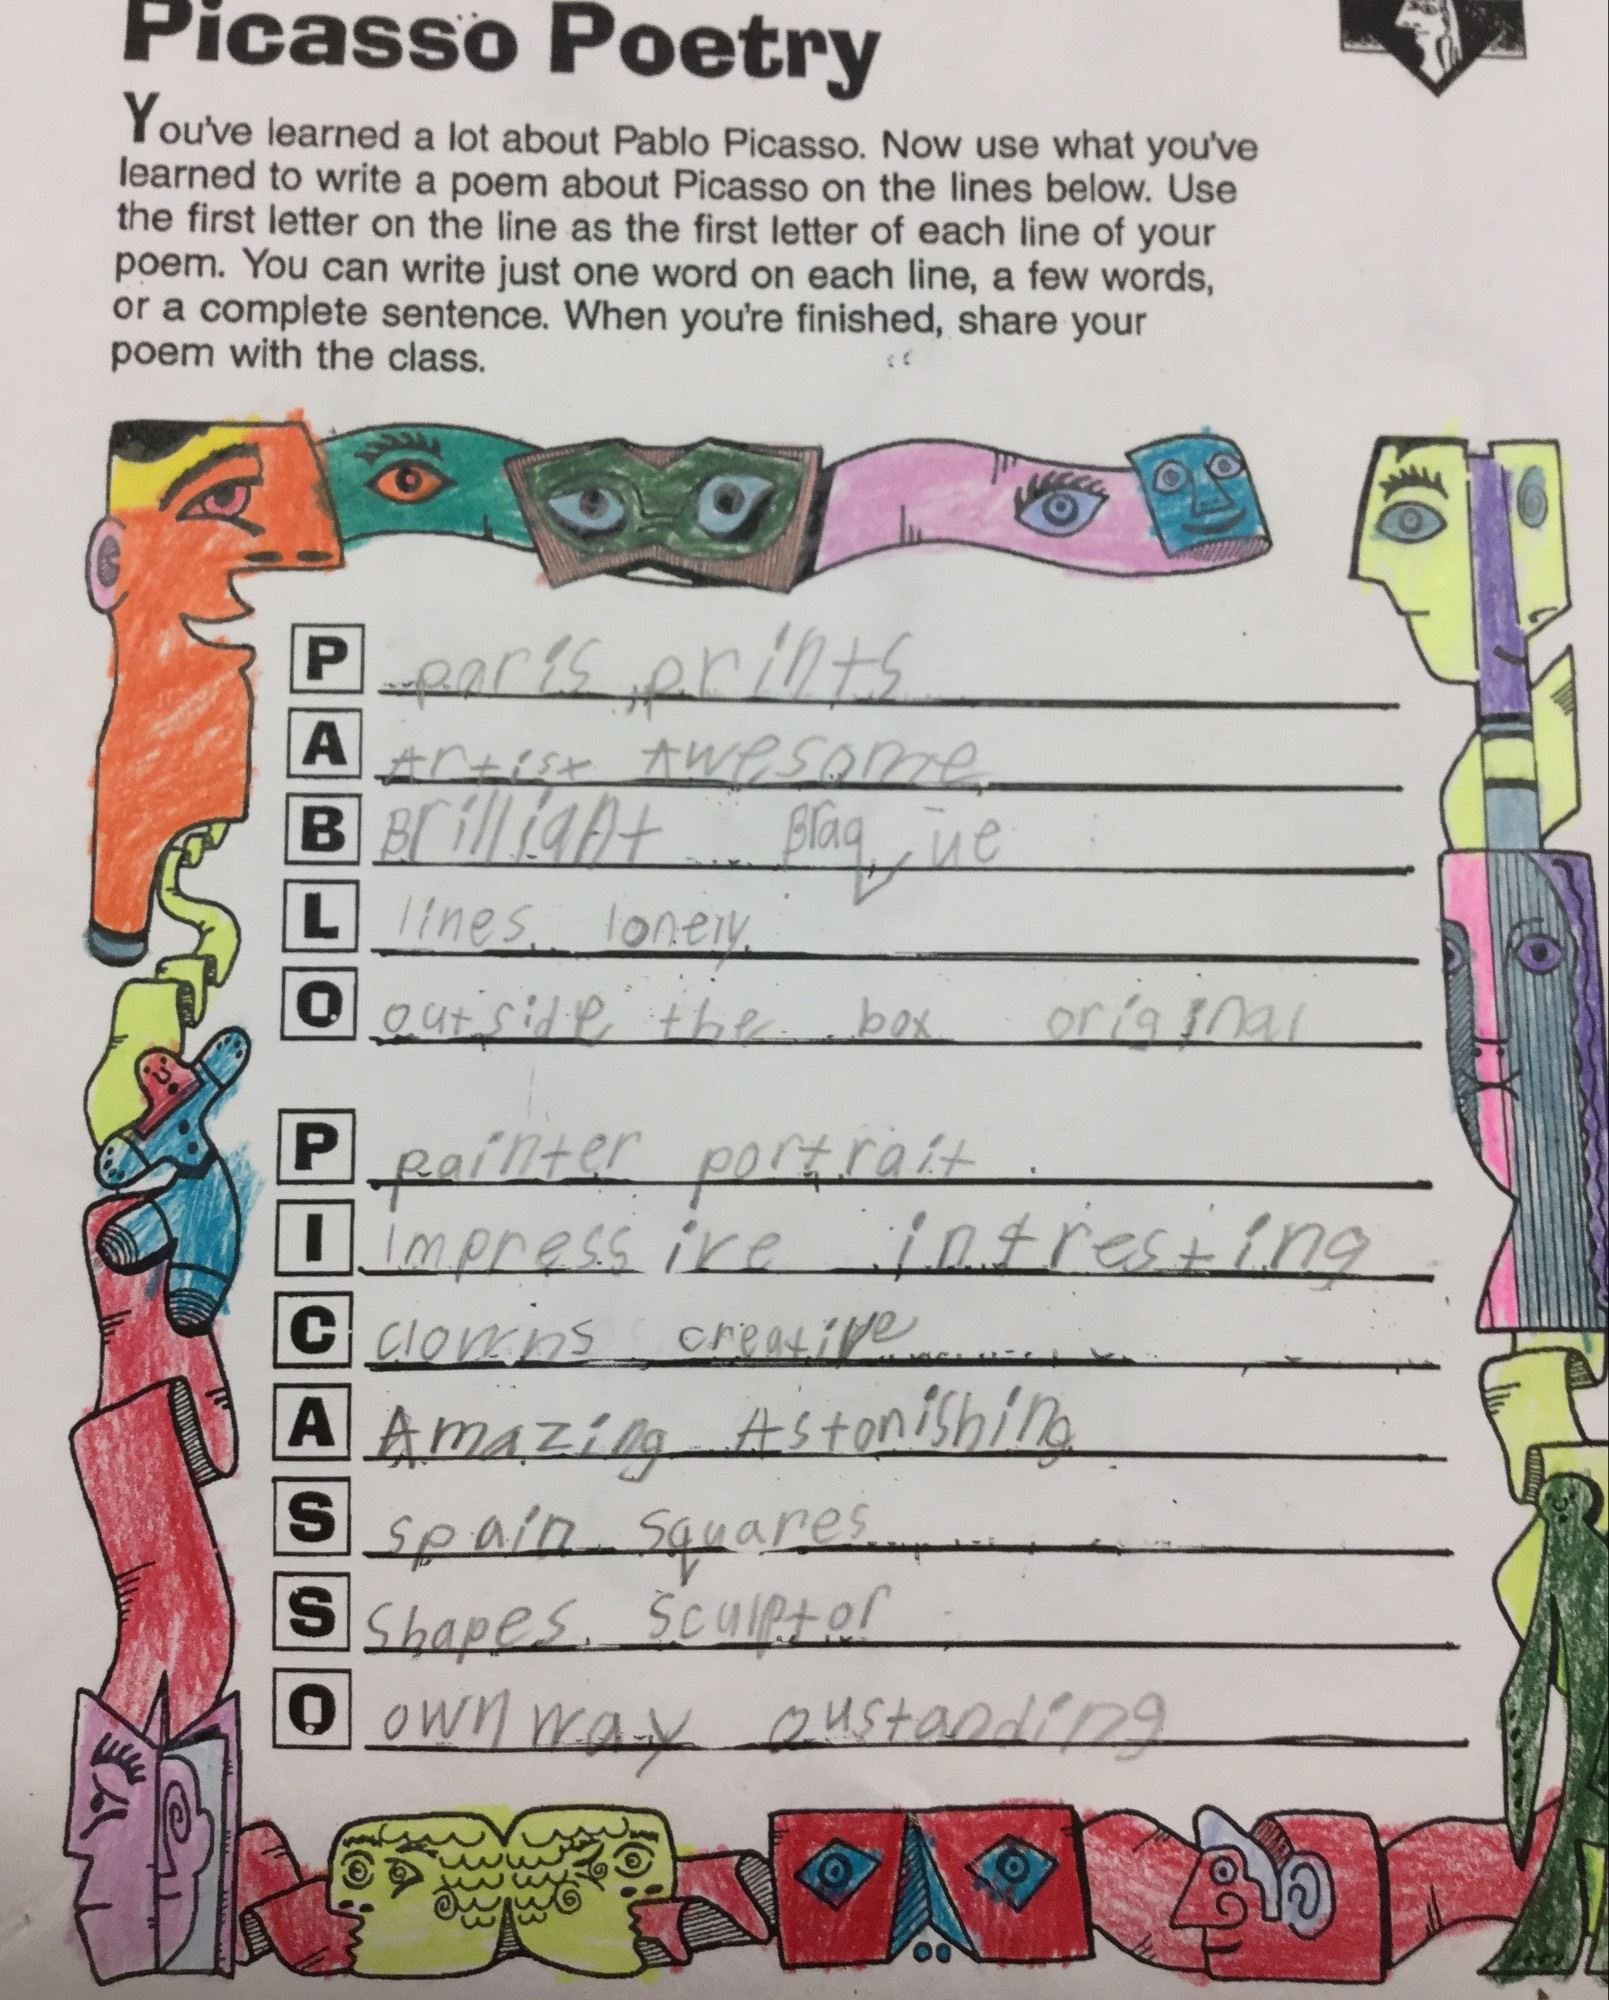 Picasso Poetry
You've learned a lot about Pablo Picasso. Now use what you've
learned to write a poem about Picasso on the lines below. Use
the first letter on the line as the first letter of each line of your
poem. You can write just one word on each line, a few words,
or a complete sentence. When you're finished, share your
poem with the class.
P paris prints
A Artist Awesome
B Brillignt Braque
L lines lonely
O outside the box original
P painter portrait
I Impressive intresting
C clowns creative
A Amazing Astonishing
S spain squares
S shapes sculptor
O own way oustanding